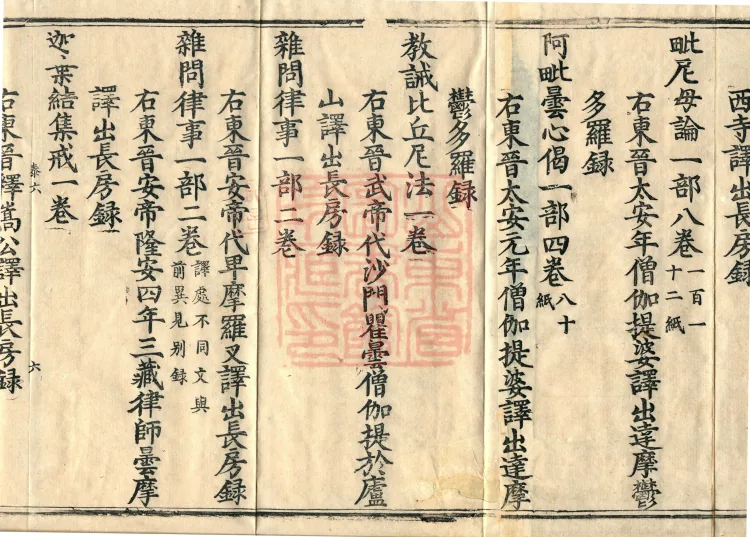 西寺譯出長房録
毗尼母論一部八卷 一百一
十二紙
右東晉太安年僧伽提婆譯出達摩鬱
多羅録
阿毗曇心偈一部四卷 八十
紙
右東晉太安元年僧伽提婆譯出達摩
鬱多羅録
教誡比丘尼法一卷
右東晉武帝代沙門瞿曇僧伽提於廬
山譯出長房録
雜問律事一部二卷
右東晉安帝代卑摩羅叉譯出長房録
雜問律事一部二卷 譯處不同文與
前異見别録
右東晉安帝隆安四年三藏律師曇摩
譯出長房録
迦葉結集戒一卷
泰六 六
右東晉釋嵩公譯出長房録